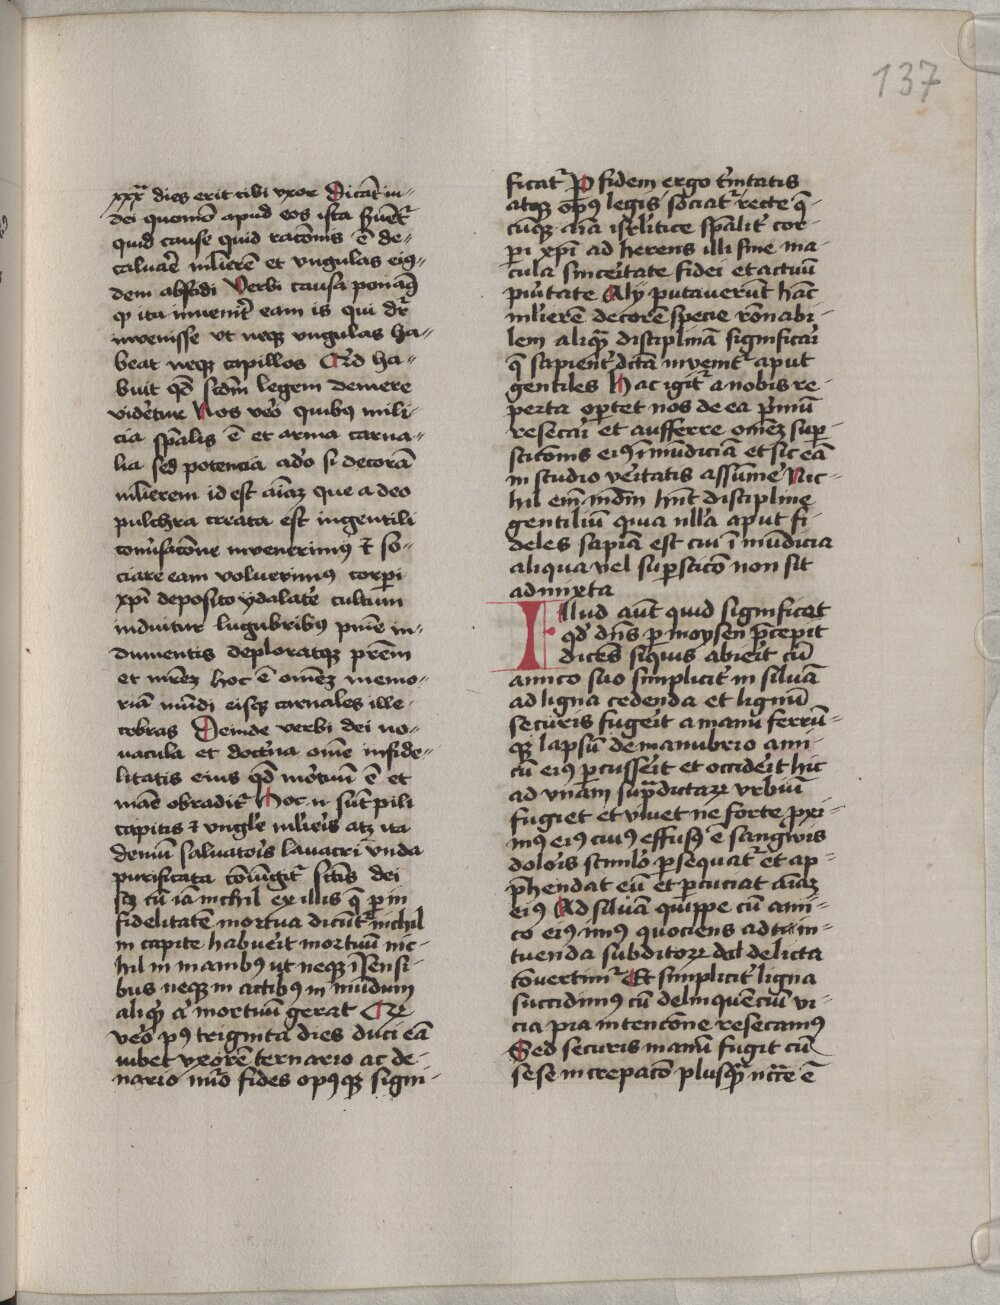 137
xxxᵃ dies erit tibi vxor Dicāt iu-
dei quomō apud eos ista s̄uētᵣ
quid cause quid racōnis ē de-
caluar̄e mlierē et vngulas eiꝰ-
dem absc̄di Verbi causa ponaꝰ
ꝙ ita inuenit̄ eam is qui dr̄
inuenisse vt neqꝫ vngulas ha-
beat neqꝫ capillos Qd ha-
buit qd̄ scdm̄ legem demere
videretur Nos vēo quibꝰ mili-
cia sp̄alis ē et arma carna-
lia sed potencia adeo si decorā
mlierem id est aīaꝫ que a deo
pulchra creata est in gentili
conūsacōne inuenerimꝰ et so-
ciare eam voluerimꝰ corpi
xp̄i deposito ydalatr̄e cultum
induitur lugubribꝰ pnīe in-
dumentis deploratqꝫ pr̄em
et mr̄eꝫ hoc ē omēꝫ memo-
riā mūdi eiusqꝫ carnales ille-
cebras Deinde verbi dei no-
uacula et doctrīa omē infide-
litatis eius qd̄ mortuū ē et
inane obradit̄ Hoc n̄ sūt pili
capitis et vngle mlieris atqꝫ ita
demū saluatoris lauacri vnda
purificata cōiūgit̄ sctīs dei
sꝫ cū iā nichil ex illis q̄ p in
fidelitatem mortua dicūtᵣ nichil
in capite habuerit mortuū nic-
hil in manibꝰ ut neqꝫ ī sensi-
bus neqꝫ in actibꝰ in mūdum
aliqd̄ aᵗ mortuū gerat Qꝫ
vēo pꝰ triginta dies duci eā
iubet vxorē ternario ac de-
nario nūo fides opꝰqꝫ signi-
ficatᵣ P fidem ergo trinitatis
atqꝫ opꝰ legis sociatᵣ recte q̄-
cūqꝫ aīa isrlitice sp̄alitᵣ cor-
pi xp̄i ad herens illi sine ma-
cula sinceritate fidei et actuū
piūtate Aly putauerūt hāc
mlierē decorē specie rōnabi-
lem aliqᵃ disciplinā significari
q̄ sapient dicta inuenitᵣ aput
gentiles Hac igitᵣ a nobis re-
perta oportet nos de ea primū
resecari et aufferre omēꝫ sup-
sticionis eiꝰ īmūdiciā et sic eā
in studio veritatis assūmē Nic-
hil eīm mdm̄ hnt discipline
gentiliū quia nll̄a aput fi-
deles sapīa est cui ī mūdicia
aliqua vel supsticō non sit
admixta
Illud aūt quid significet
qd̄ dn̄s p moysen p̄cepit
dicēs siquis abierit cū
amico suo simplicitᵣ in siluā
ad ligna cedenda et lignū
securis fugerit a manu ferrū-
qꝫ lapsū de manubrio ami-
cū eiꝰ p̄cusserit et occiderit hic
ad vnam sup̄dictaꝝ vrbiū
fugiet et viuet ne forte proxi-
mꝰ eiꝰ cuiꝰ effusꝰ ē sangwis
doloris stimlō psequatᵣ et ap-
p̄hendat eū et p̄cuciat aīaꝫ
eiꝰ Ad siluā quippe cū ami-
co eiꝰ imꝰ quociens ad in-
tuenda subditoꝝ delicta
cōuertimᵣ Et simplicitᵣ ligna
succidimꝰ cū delinquēciū vi-
cia pia intencōne resecamꝰ
Sed securis manū fugit cū
sese increpacō plusqᵃ ncc̄e ē